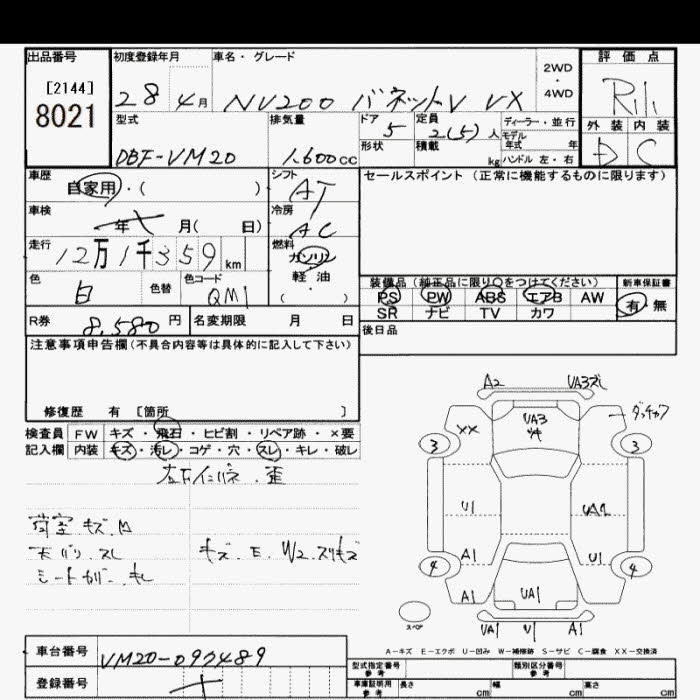 出品番号 初度登録年月 車名・グレード 2WD・4WD 評価点
[2144] 8021
28 4月 NV200 バネットV VX
型式 排気量 ドア 定員 ディーラー・並行 外装 内装
5 2(5)人 モデル年式 年
形状 積載 kg ハンドル 左・右
DBF-VM20 1.600cc D C
車歴 シフト セールスポイント (正常に機能するものに限ります)
自家用・( ) AT
車検 年 月( 日) 冷房 AC
走行 12万1千359km 燃料 ガソリン
軽油
( )
色 白 色替 色コード QM1
装備品(純正品に限り○をつけてください) 新車保証書
PS PW ABS エアB AW 有・無
SR ナビ TV カワ
R券 8,580円 名変期限 月 日
後日品
注意事項申告欄(不具合内容等は具体的に記入して下さい)
修復歴 有 [箇所 ]
検査員 FW キズ・飛石・ヒビ割・リペア跡・×要
記入欄 内装 キズ・汚レ・コゲ・穴・スレ・キレ・破レ
荷室 キズ.M
スレ キズ.E.W2.スリキズ
A2 UA3ズレ
XX UA3
3 3
U1 UA2
A1 U1
4 4
A1 UA1
スペア
UA1 U1 A1
A-キズ E-エクボ U-凹み W-補修跡 S-サビ C-腐食 XX-交換済
車台番号 VM20-097489
登録番号
型式指定番号 参考 類別区分番号 参考
車庫証明用 参考 長さ cm 幅 cm 高さ cm